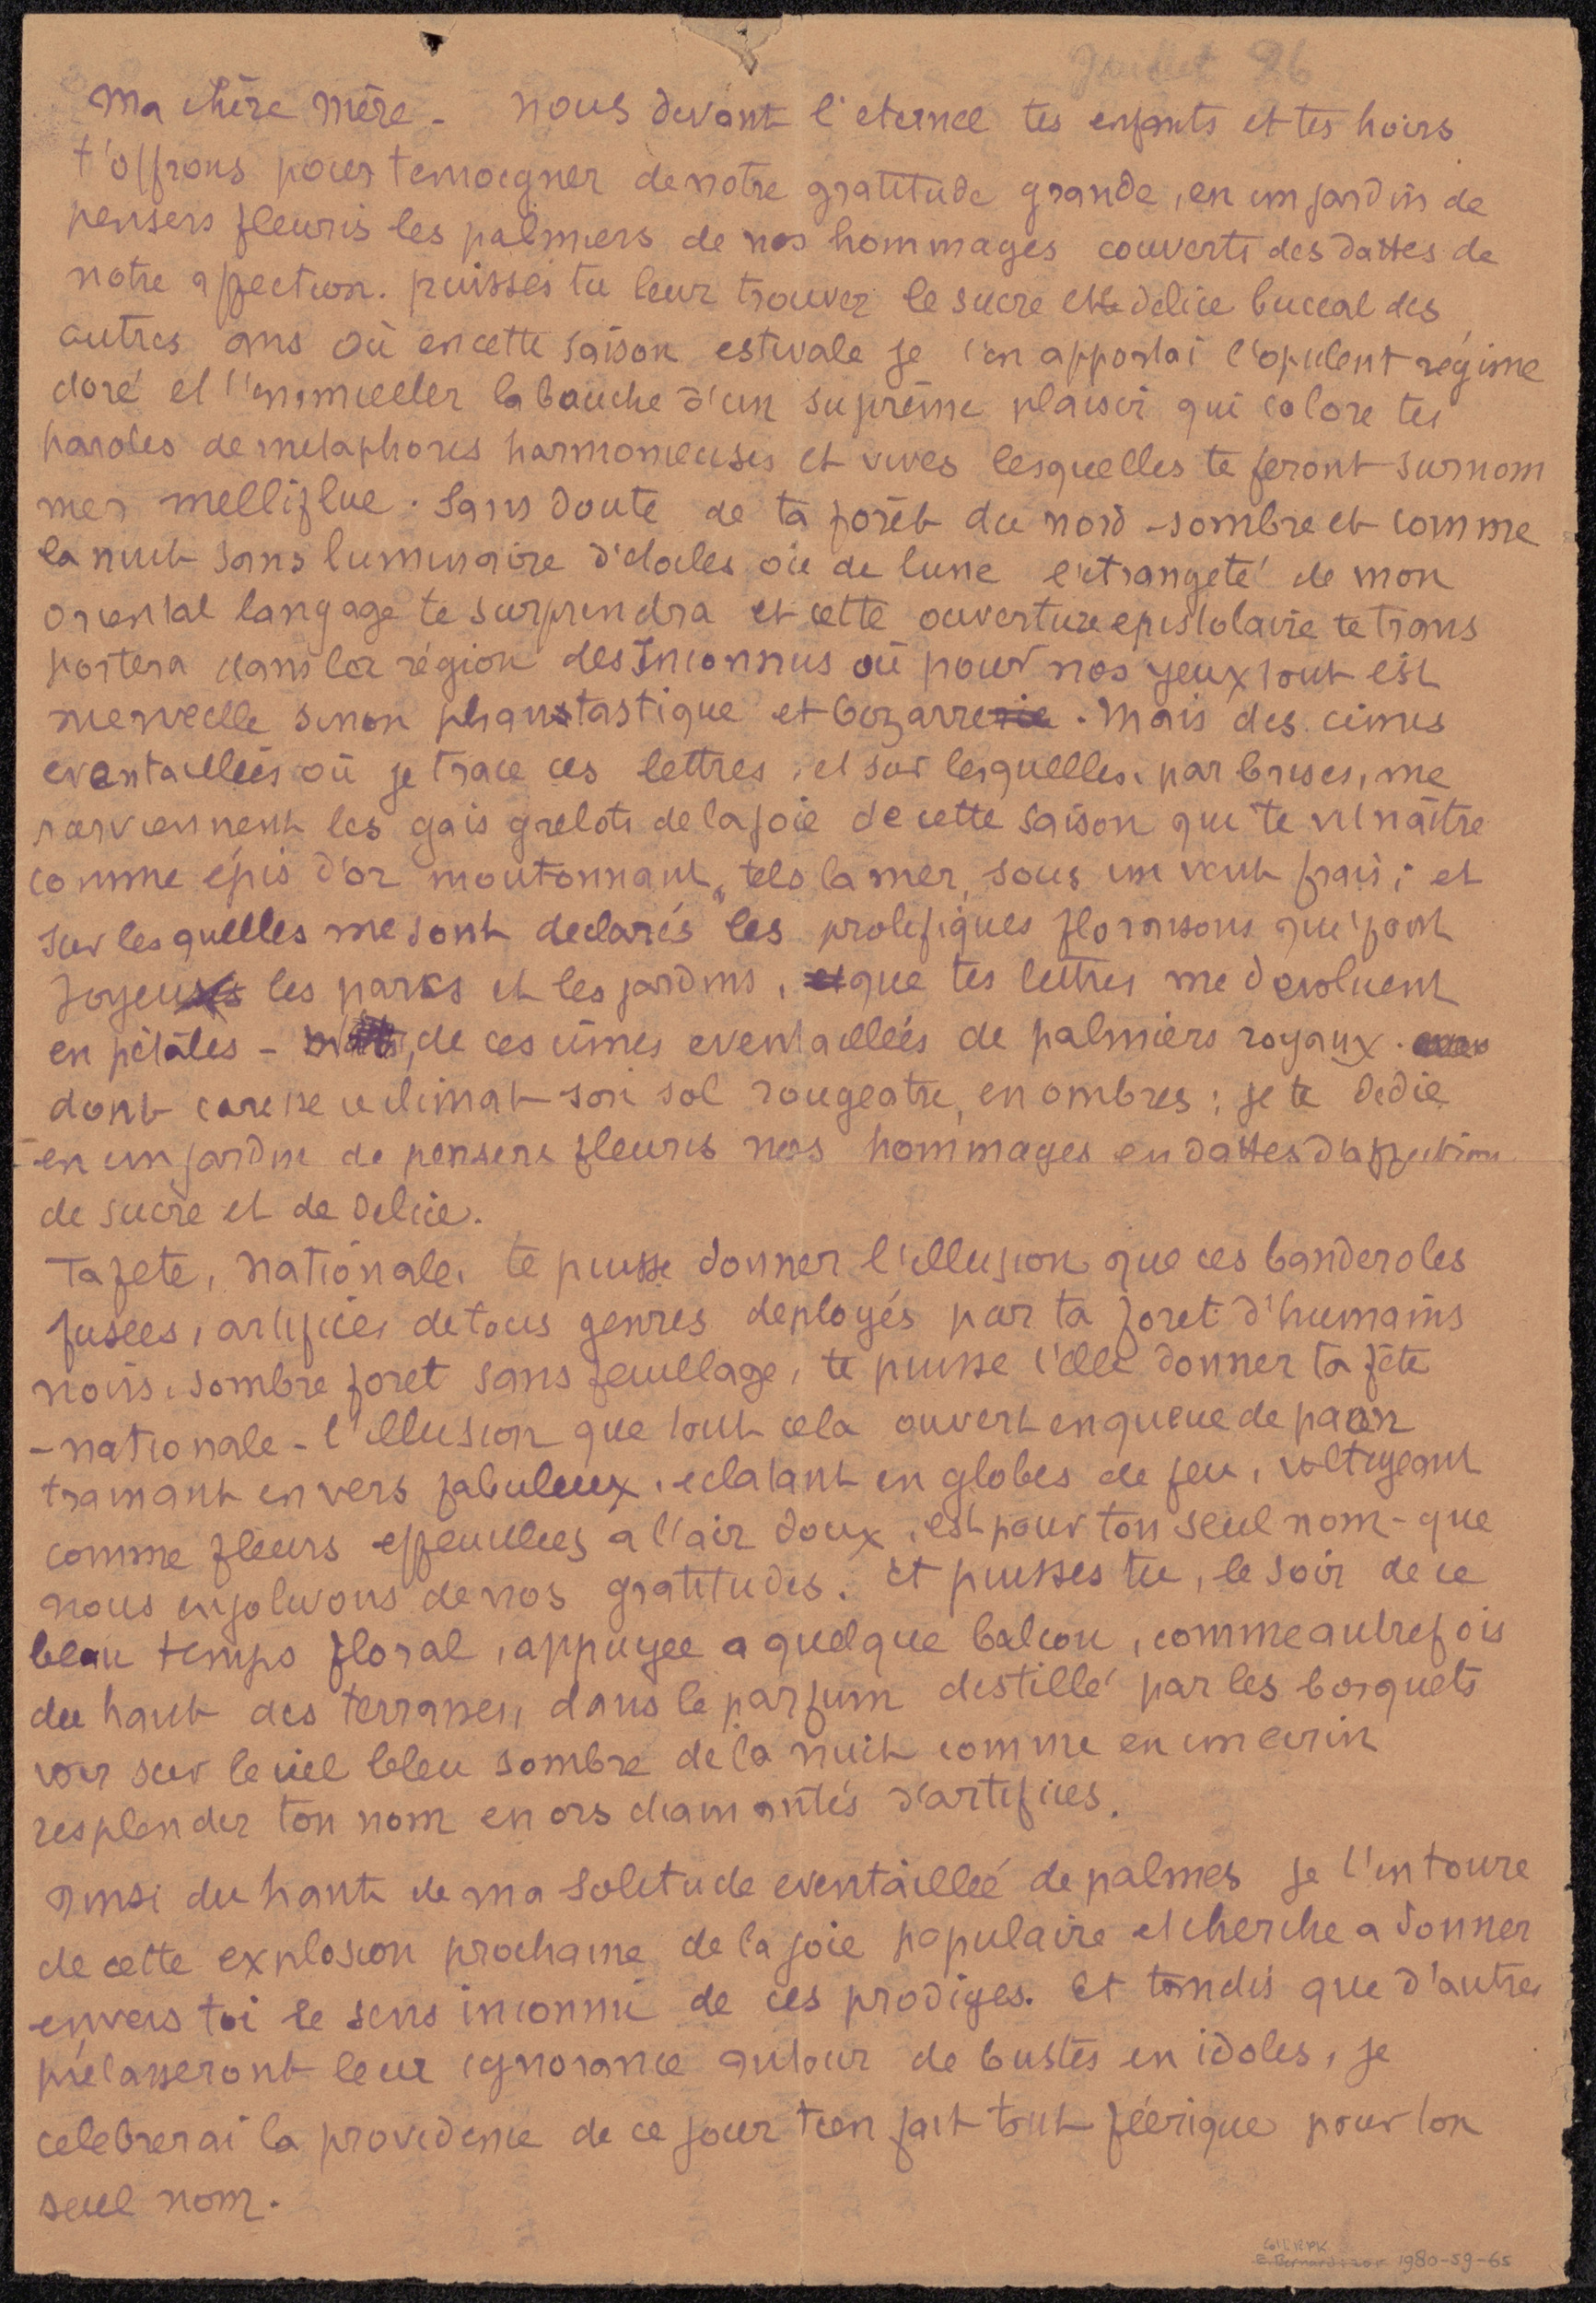 Juillet 96
Ma chère Mère - nous devant l'eternel tes enfants et tes hoirs
t'offrons pour temoigner de notre gratitude grande, en un jardin de
pensers fleuris les palmiers de nos hommages couverts des dattes de
notre affection. puisses tu leur trouver le sucre et le delice buccal des
autres ans où en cette saison estivale je t'en apportai l'opulent régime
doré et t'enmieller la bouche d'un suprême plaisir qui colore tes
paroles de metaphores harmonieuses et vives lesquelles te feront surnom
mer melliflue. Sans doute de ta forêt du nord - sombre et comme
la nuit sans luminaire d'étoiles où de lune l'etrangeté de mon
oriental langage te surprendra et cette ouverture epistolaire te trans
portera dans la région des Inconnus où pour nos yeux tout est
merveille sinon phanstastique et bizarrerie. Mais des cimes
eventaillées où je trace ces lettres, et sur lesquelles, par brises, me
parviennent les gais grelots de la joie de cette saison qui te vit naître
comme épis d'or moutonnant, tels la mer, sous un vent frais; et
sur lesquelles me sont declarés les prolifiques floraisons qui font
Joyeuses les parcs et les jardins, et que tes lettres me devoluent
en pétâles - de ces cîmes eventaillées de palmiers royaux.
dont caresse ce climat son sol rougeatre, en ombres; je te dédie
- en un jardin de pensers fleuris nos hommages en dattes d'affection
de sucre et de delice.
Ta fete, nationale, te puisse donner l'illusion que ces banderoles
fusees, artifices de tous genres deployés par ta foret d'humains
noirs, sombre foret sans feuillage, te puisse t'elle donner ta fête
- nationale - l'illusion que tout cela ouvert en queue de paon
tramant en vers fabuleux, eclatant en globes de feu, voltigeant
comme fleurs effeuillees à l'air doux, est pour ton seul nom - que
nous enjolivons de nos gratitudes. Et puisses tu, le soir de ce
beau temps floral, appuyee a quelque balcon, comme autrefois
du haut des terrasses, dans le parfum distillé par les bosquets
voir sur le ciel bleu sombre de la nuit comme en un ecrin
resplendir ton nom en ors diamantés d'artifices.
Ainsi du haut de ma solitude eventaillée de palmes je t'entoure
de cette explosion prochaine de la joie populaire et cherche a donner
envers toi le sens inconnu de ces prodiges. Et tandis que d'autres
prélasseront leur ignorance autour de bustes en idoles, je
celebrerai la providence de ce jour tien fait tout féerique pour ton
seul nom.
E. Bernard 1980-59-65